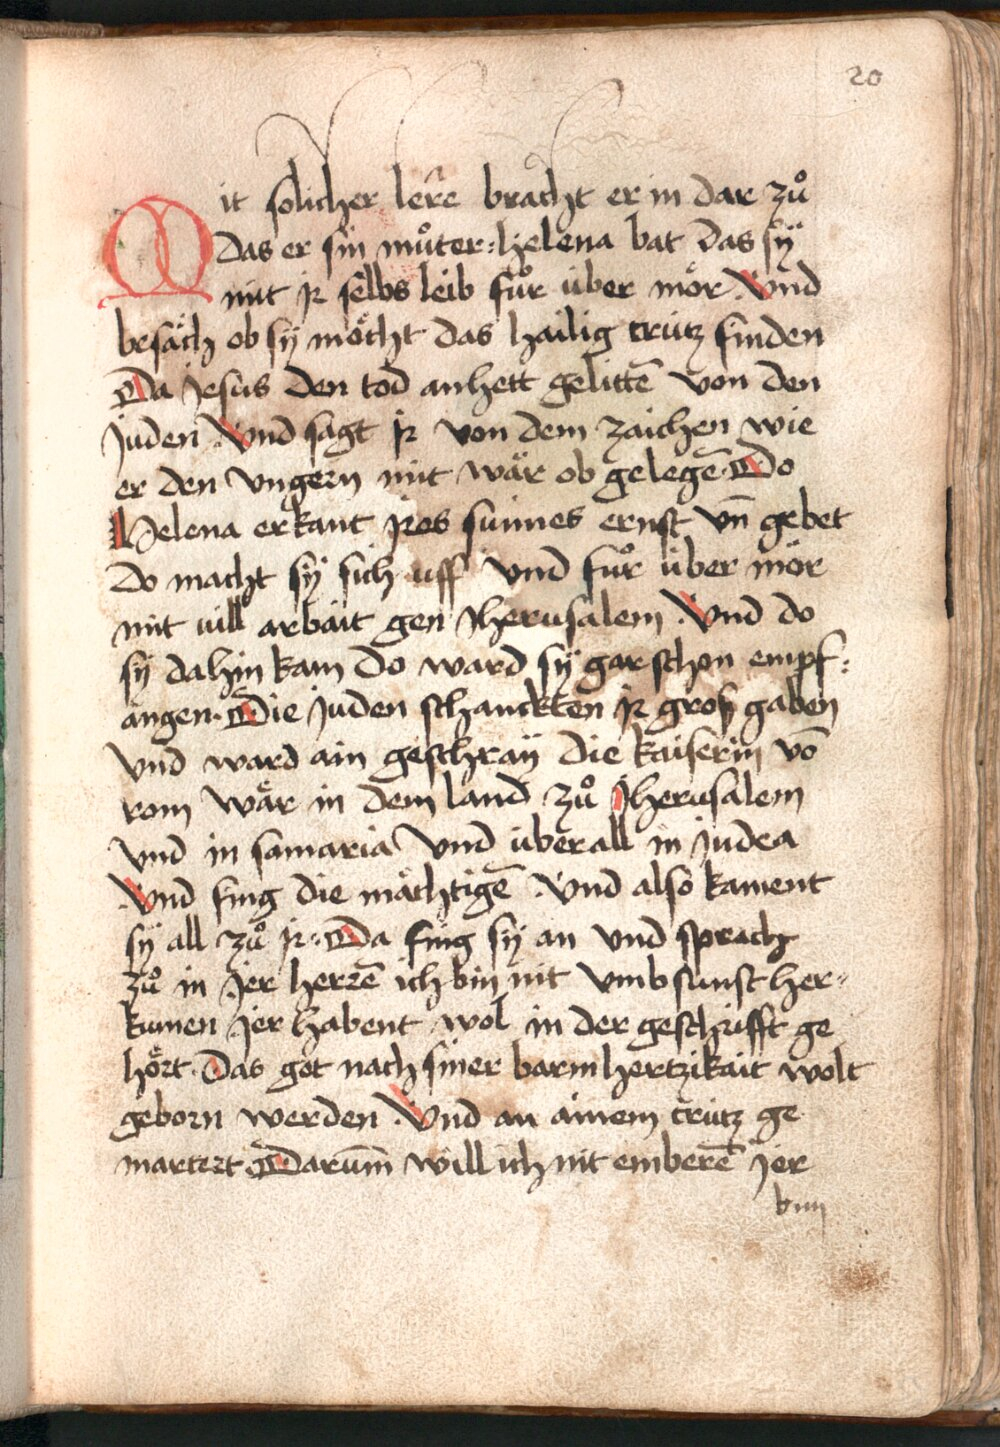 20
Mit solicher lere bracht er in dar zuͦ
das er sin muͦter : helena bat das sÿ
mit ir selbs leib fuͦr über mör . Vnd
besäch ob sÿ möcht das hailig crütz finden
Da jesus den tod anhett gelittē von den
juden . Vnd sagt ir von dem zaichen wie
er den vngern mit wär ob gelegē . Do
Helena erkant jres sunnes ernst vn̄ gebet
do macht sÿ sich uff Vnd fuͦr über mör
mit uill arbait gen Jherusalem . Vnd do
sÿ dahin kam do ward sÿ gar schon empf:
angen . Die juden schanckten ir groß gaben
Vnd ward ain geschraÿ die kaiserin vō
rom wär in dem land zuͦ Jherusalem
Vnd in samaria Vnd überall in judea
. Vnd fing die mächtigē . Vnd also kament
sÿ all zuͦ ir . Da fing sÿ an vnd sprach
zuͦ in Jer herrē ich bin nit vmb sunst her-
kumen Jer habent wol in der geschrifft ge
hört . Das got nach siner barmhertzikait wolt
geborn werden . Vnd an ainem crütz ge
martert . Darum̄ will ich nit emberē Jer